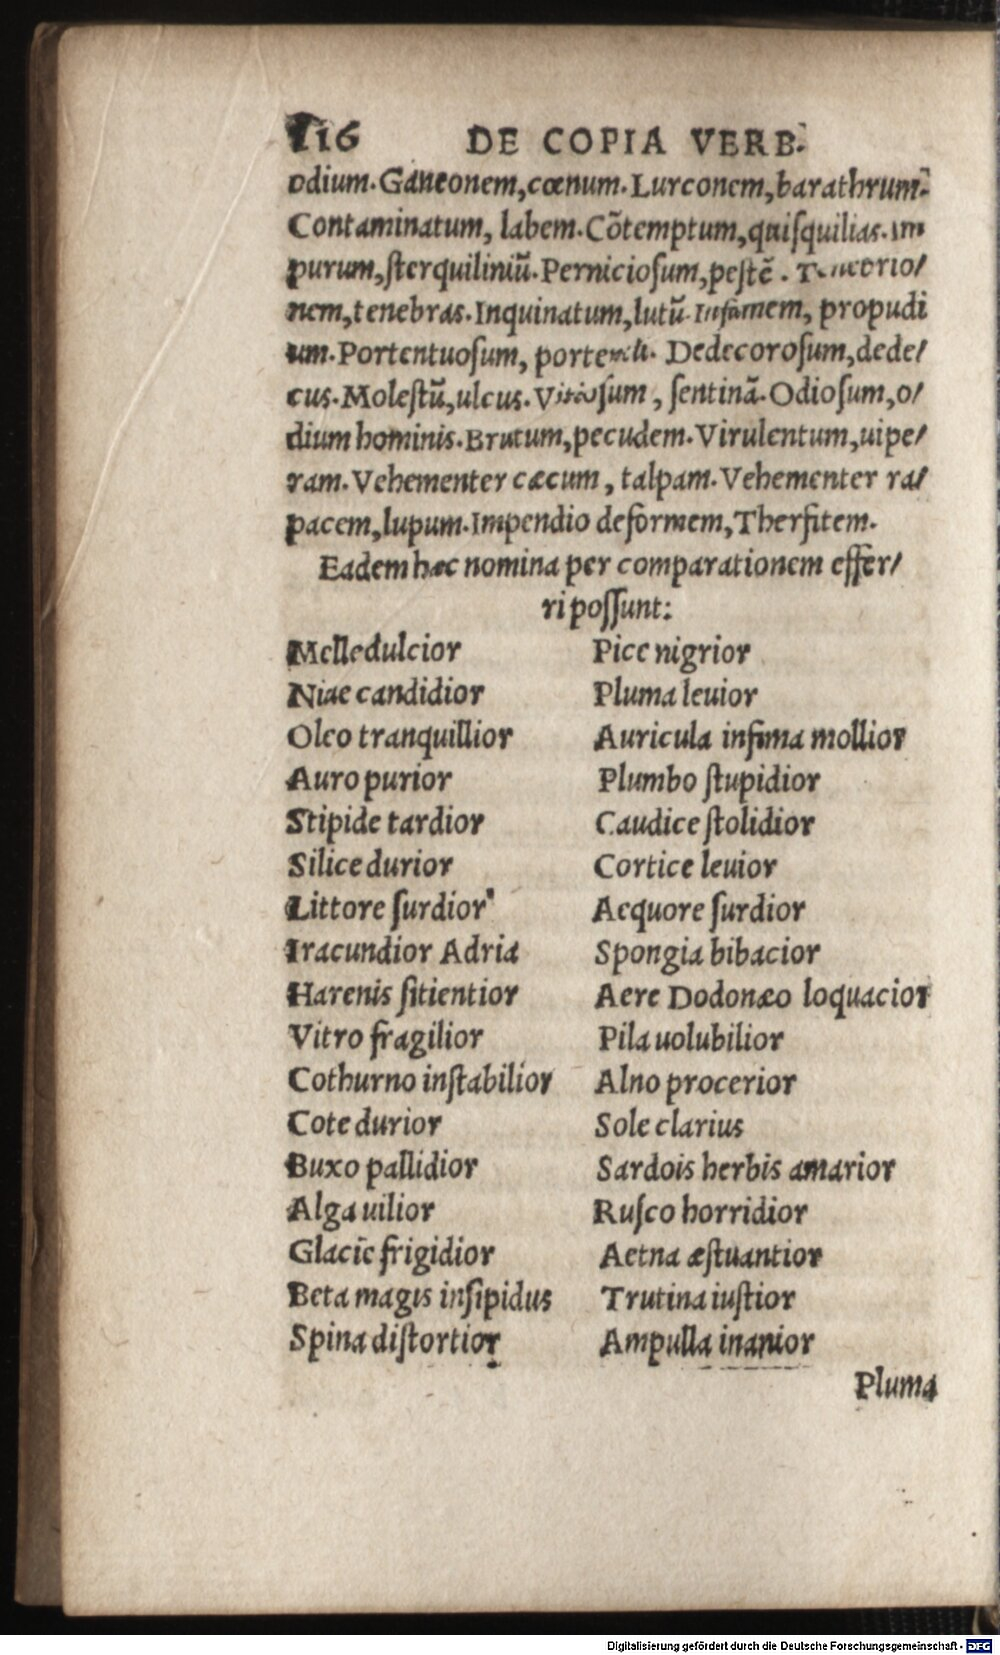 116 DE COPIA VERB.
odium. Ganeonem, cœnum. Lurconem, barathrum.
Contaminatum, labem. Cõtemptum, quiſquilias. Im
purum, ſterquiliniũ. Pernicioſum, peſtẽ.
nem, tenebras. Inquinatum, lutũ. Infamem, propudi
um. Portentuoſum, Dedecoroſum, dede/
cus. Moleſtũ, ulcus. Vitioſum, ſentinã. Odioſum, o/
dium hominis. Brutum, pecudem. Virulentum, uipe/
ram. Vehementer cæcum, talpam. Vehementer ra/
pacem, lupum. Impendio deformem, Therſitem.
Eadem hæc nomina per comparationem effer/
ri poſſunt:
Melle dulcior
Niue candidior
Oleo tranquillior
Auro purior
Stipide tardior
Silice durior
Littore ſurdior
Iracundior Adria
Harenis ſitientior
Vitro fragilior
Cothurno inſtabilior
Cote durior
Buxo pallidior
Alga uilior
Glacie frigidior
Beta magis inſipidus
Spina diſtortior
Pice nigrior
Pluma leuior
Auricula infima mollior
Plumbo ſtupidior
Caudice ſtolidior
Cortice leuior
Aequore ſurdior
Spongia bibacior
Aere Dodonæo loquacior
Pila uolubilior
Alno procerior
Sole clarius
Sardois herbis amarior
Ruſco horridior
Aetna æſtuantior
Trutina iuſtior
Ampulla inanior
Pluma
Digitalisierung gefördert durch die Deutsche Forschungsgemeinschaft - DFG